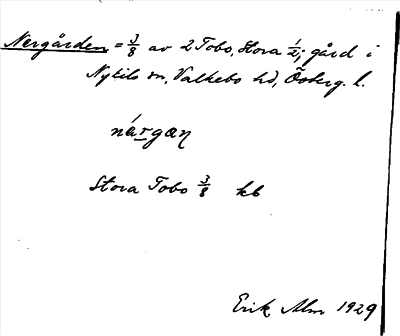 Nergården = 3/8 av 2 Tobo, Stora 1/2; gård i
Nykils sn, Valkebo hd, Österg. l.
nárgæn
Stora Tobo 3/8 kb
Erik Alm 1929